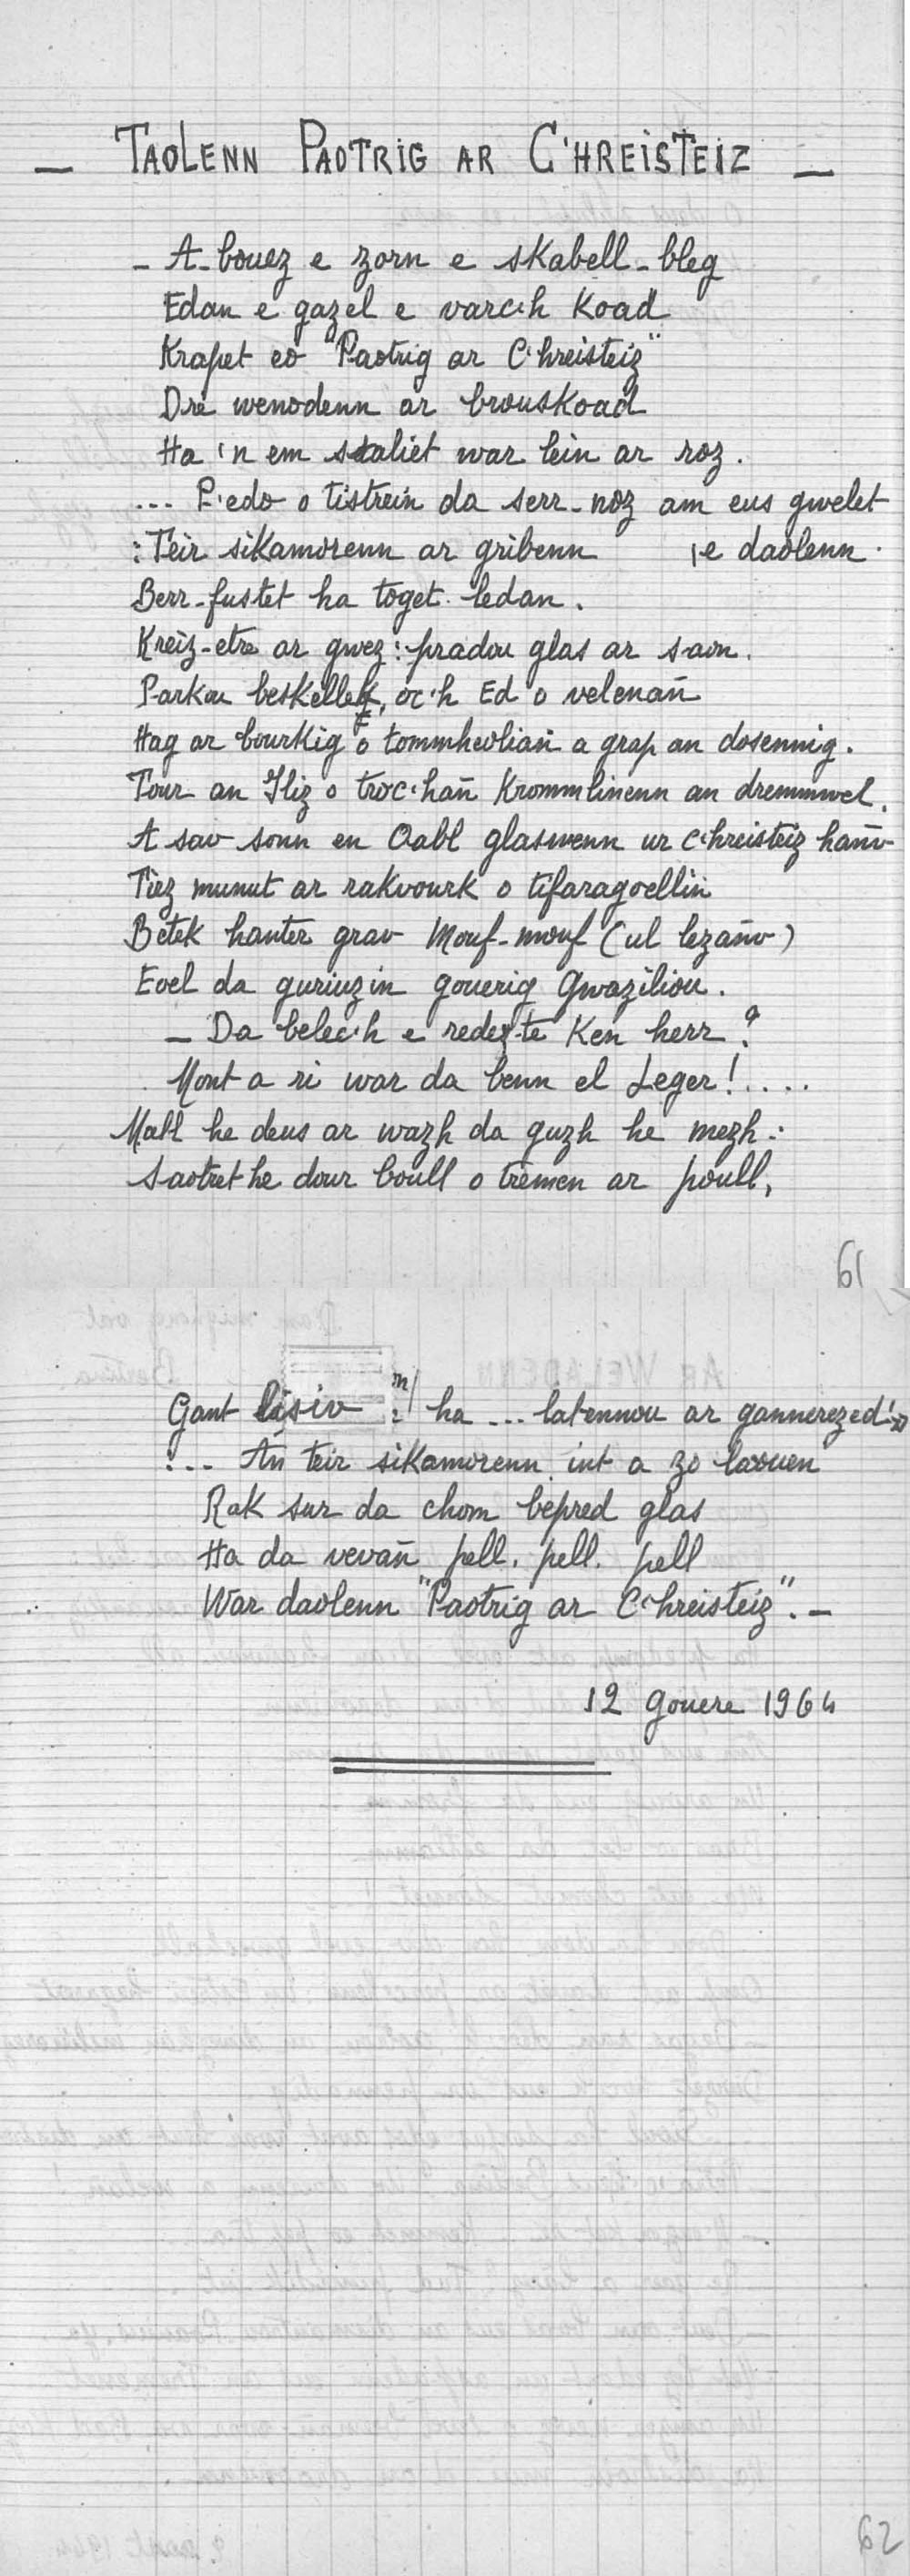 — TAOLENN PAOTRIG AR C'HREISTEIZ —
- A-bouez e zorn e skabell-bleg
Edan e gazel e varc'h Koad
Krapet eo "Paotrig ar C'hreisteiz"
Dre wenodenn ar brouskoad
Ha 'n em staliet war lein ar roz.
... P'edo o tistrein da serr-noz am eus gwelet
e daolenn.
: Teir sikamorenn ar gribenn
Berr-fustet ha toget-ledan.
Kreiz-etre ar gwez : pradou glas ar saon.
Parkou beskellek, oc'h Ed o velenañ
Hag ar bourkig o tommheoliañ a grap an dosennig.
Tour an Iliz o troc'hañ Krommlinenn an dremmwel.
A sav sonn en Oabl glaswenn ur c'hreisteiz hañv
Tiez munut ar rakvourk o tifaragoellin
Betek hanter grav Mouf-mouf (ul lezañv)
Evel da guriuzin gouerig Gwaziliou.
- Da belec'h e redez-te Ken herr ?
Mont a ri war da benn el Leger !....
Mall he deus ar wazh da guzh he mezh :
Saotret he dour boull o tremen ar poull,
61
Gant lisiv ha ... latennou ar gannerezed !
:... An teir sikamorenn int a zo laouen
Rak sur da chom bepred glas
Ha da vevañ pell, pell, pell
War daolenn "Paotrig ar C'hreisteiz". -
12 gouere 1964
62